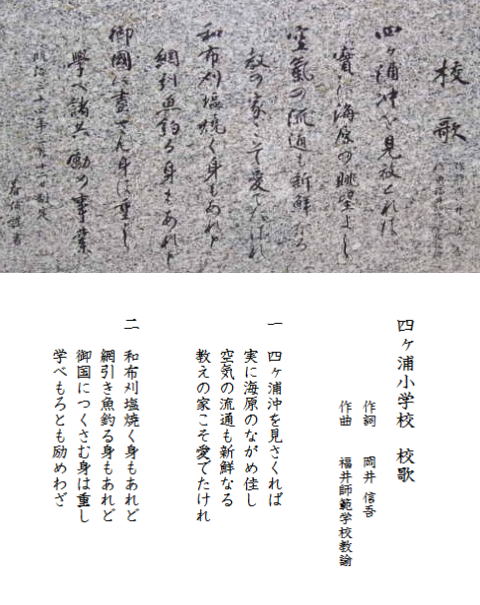 校歌
四ヶ浦沖を見放くれば
實に海原の眺望よし
空氣の流通も新鮮なる
教の家こそ愛でたけれ
和布刈塩焼く身もあれど
網引魚釣る身もあれど
御國に盡さん身は重し
學べ諸共勵め事業
四ヶ浦小学校 校歌
作詞 岡井 信吾
作曲 福井師範学校教諭
一 四ヶ浦沖を見さくれば
実に海原のながめ佳し
空気の流通も新鮮なる
教えの家こそ愛でたけれ
二 和布刈塩焼く身もあれど
網引き魚釣る身もあれど
御国につくさむ身は重し
学べもろとも励めわざ